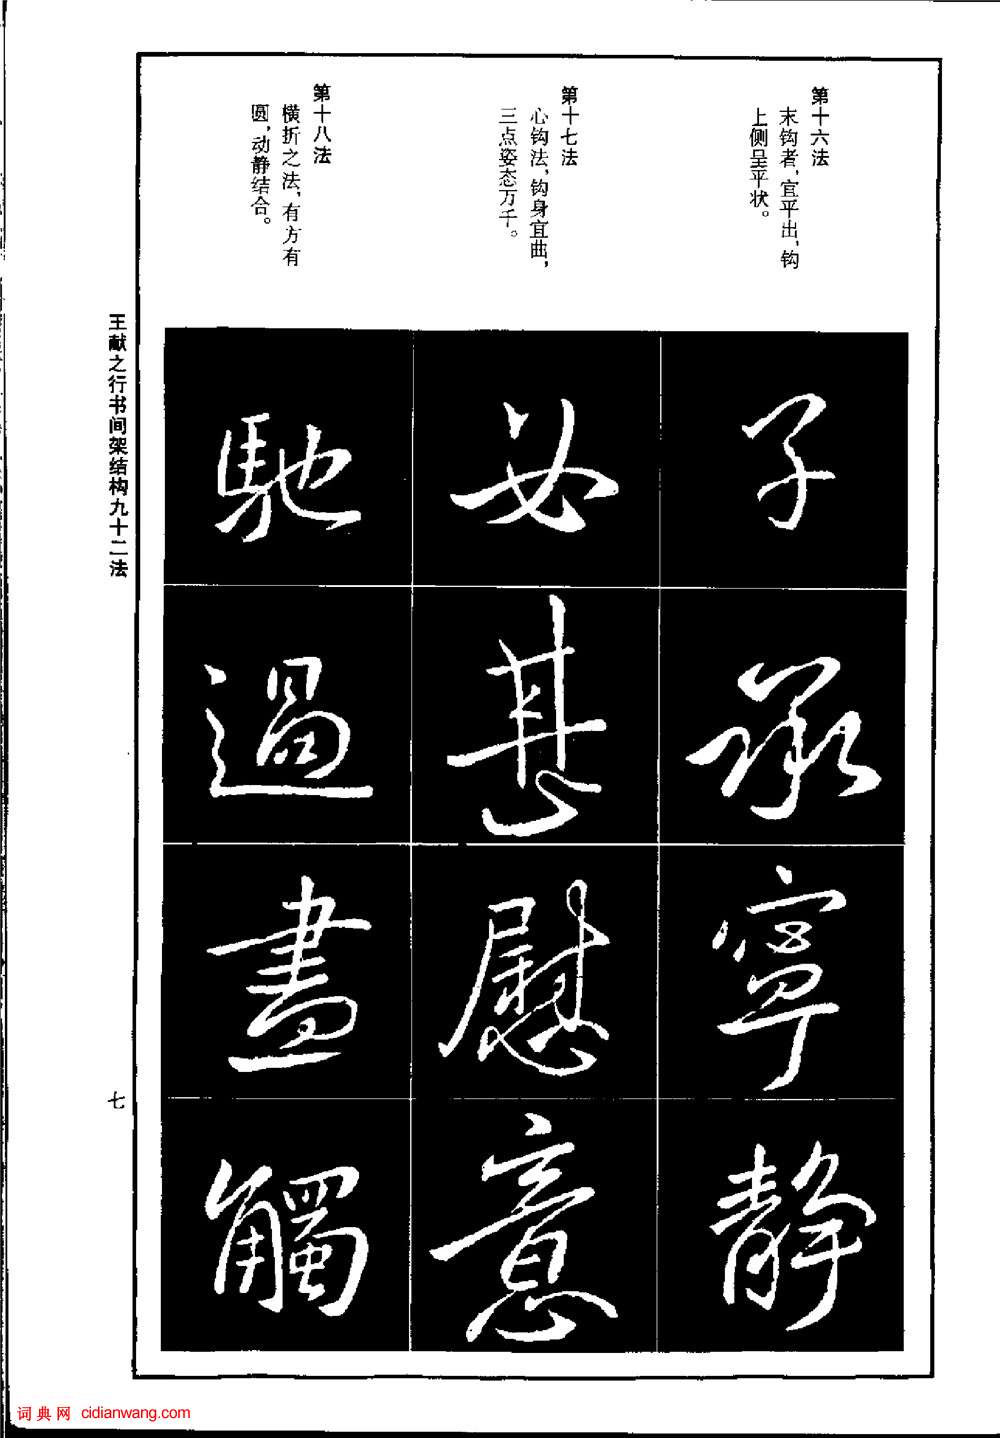 第十六法
末钩者,宜平出,钩
上侧呈平状。
子
承
寧
静
第十七法
心钩法,钩身宜曲,
三点姿态万千。
必
甚
慰
意
第十八法
横折之法,有方有
圆,动静结合。
馳
過
畫
觸
王献之行书间架结构九十二法
七
词典网 cidianwang.com